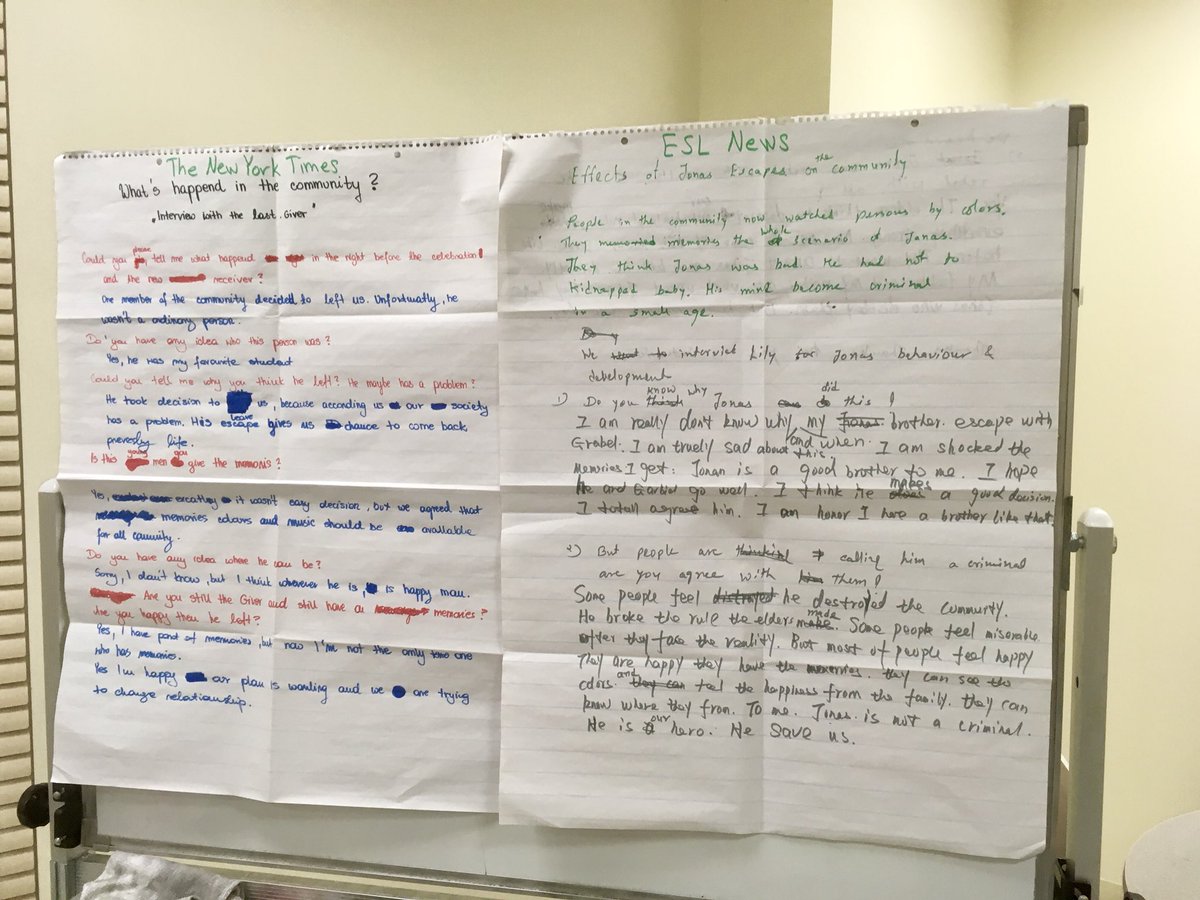 The New York Times
What's happend in the community?
"Interview with the last Giver"
Could you please, tell me what happend in the night before the celebration
and the new receiver?
One member of the community decided to left us. Unfortuatly, he
wasn't a ordinary person.
Do you have any idea who this person was?
Yes, he was my favourite student
Could you tell me why you think he left? He maybe has a problem?
He took decision to leave us, because according us our society
has a problem. His escape gives us chance to come back
previosly life.
Is this young men you give the memoris?
Yes, excatley it wasn't easy decision, but we agreed that
memories colours and music should be available
for all camunity.
Do you have any idea where he can be?
Sorry, I don't know, but I think wherever he is, is happy man.
Are you still the Giver and still have a memories?
Are you happy then he left?
Yes, I have part of memories, but now I'm not the only one
who has memories.
Yes I'm happy our plan is working and we are trying
to change relationship.
ESL News
Effects of Jonas Escapes on the community
People in the community now watched persons by colors.
They memories the whole scenario of Jonas.
They think Jonas was bad. He had not to
kidnapped baby. His mind become criminal
in a small age.
We interviet Lily for Jonas behaviour &
development
1) Do you know why Jonas did this!
I am really don't know why, my brother escape with
Grabel. I am truely sad about this. and when I am shocked the
memories I get: Jonan is a good brother to me. I hope
He and Garbiel go well. I think He makes a good decision.
I totall agree him. I am honor I have a brother like that
2) But people are calling him a criminal
are you agree with them!
Some people feel he destroyed the community.
He broke the rule the elders made. Some people feel misorable
after they face the reality. But most of people feel happy
They are happy they have the memories. they can see the
colors. and feel the happiness from the family. they can
know where they from. To me. Jonas is not a criminal.
He is our hero. He save us.